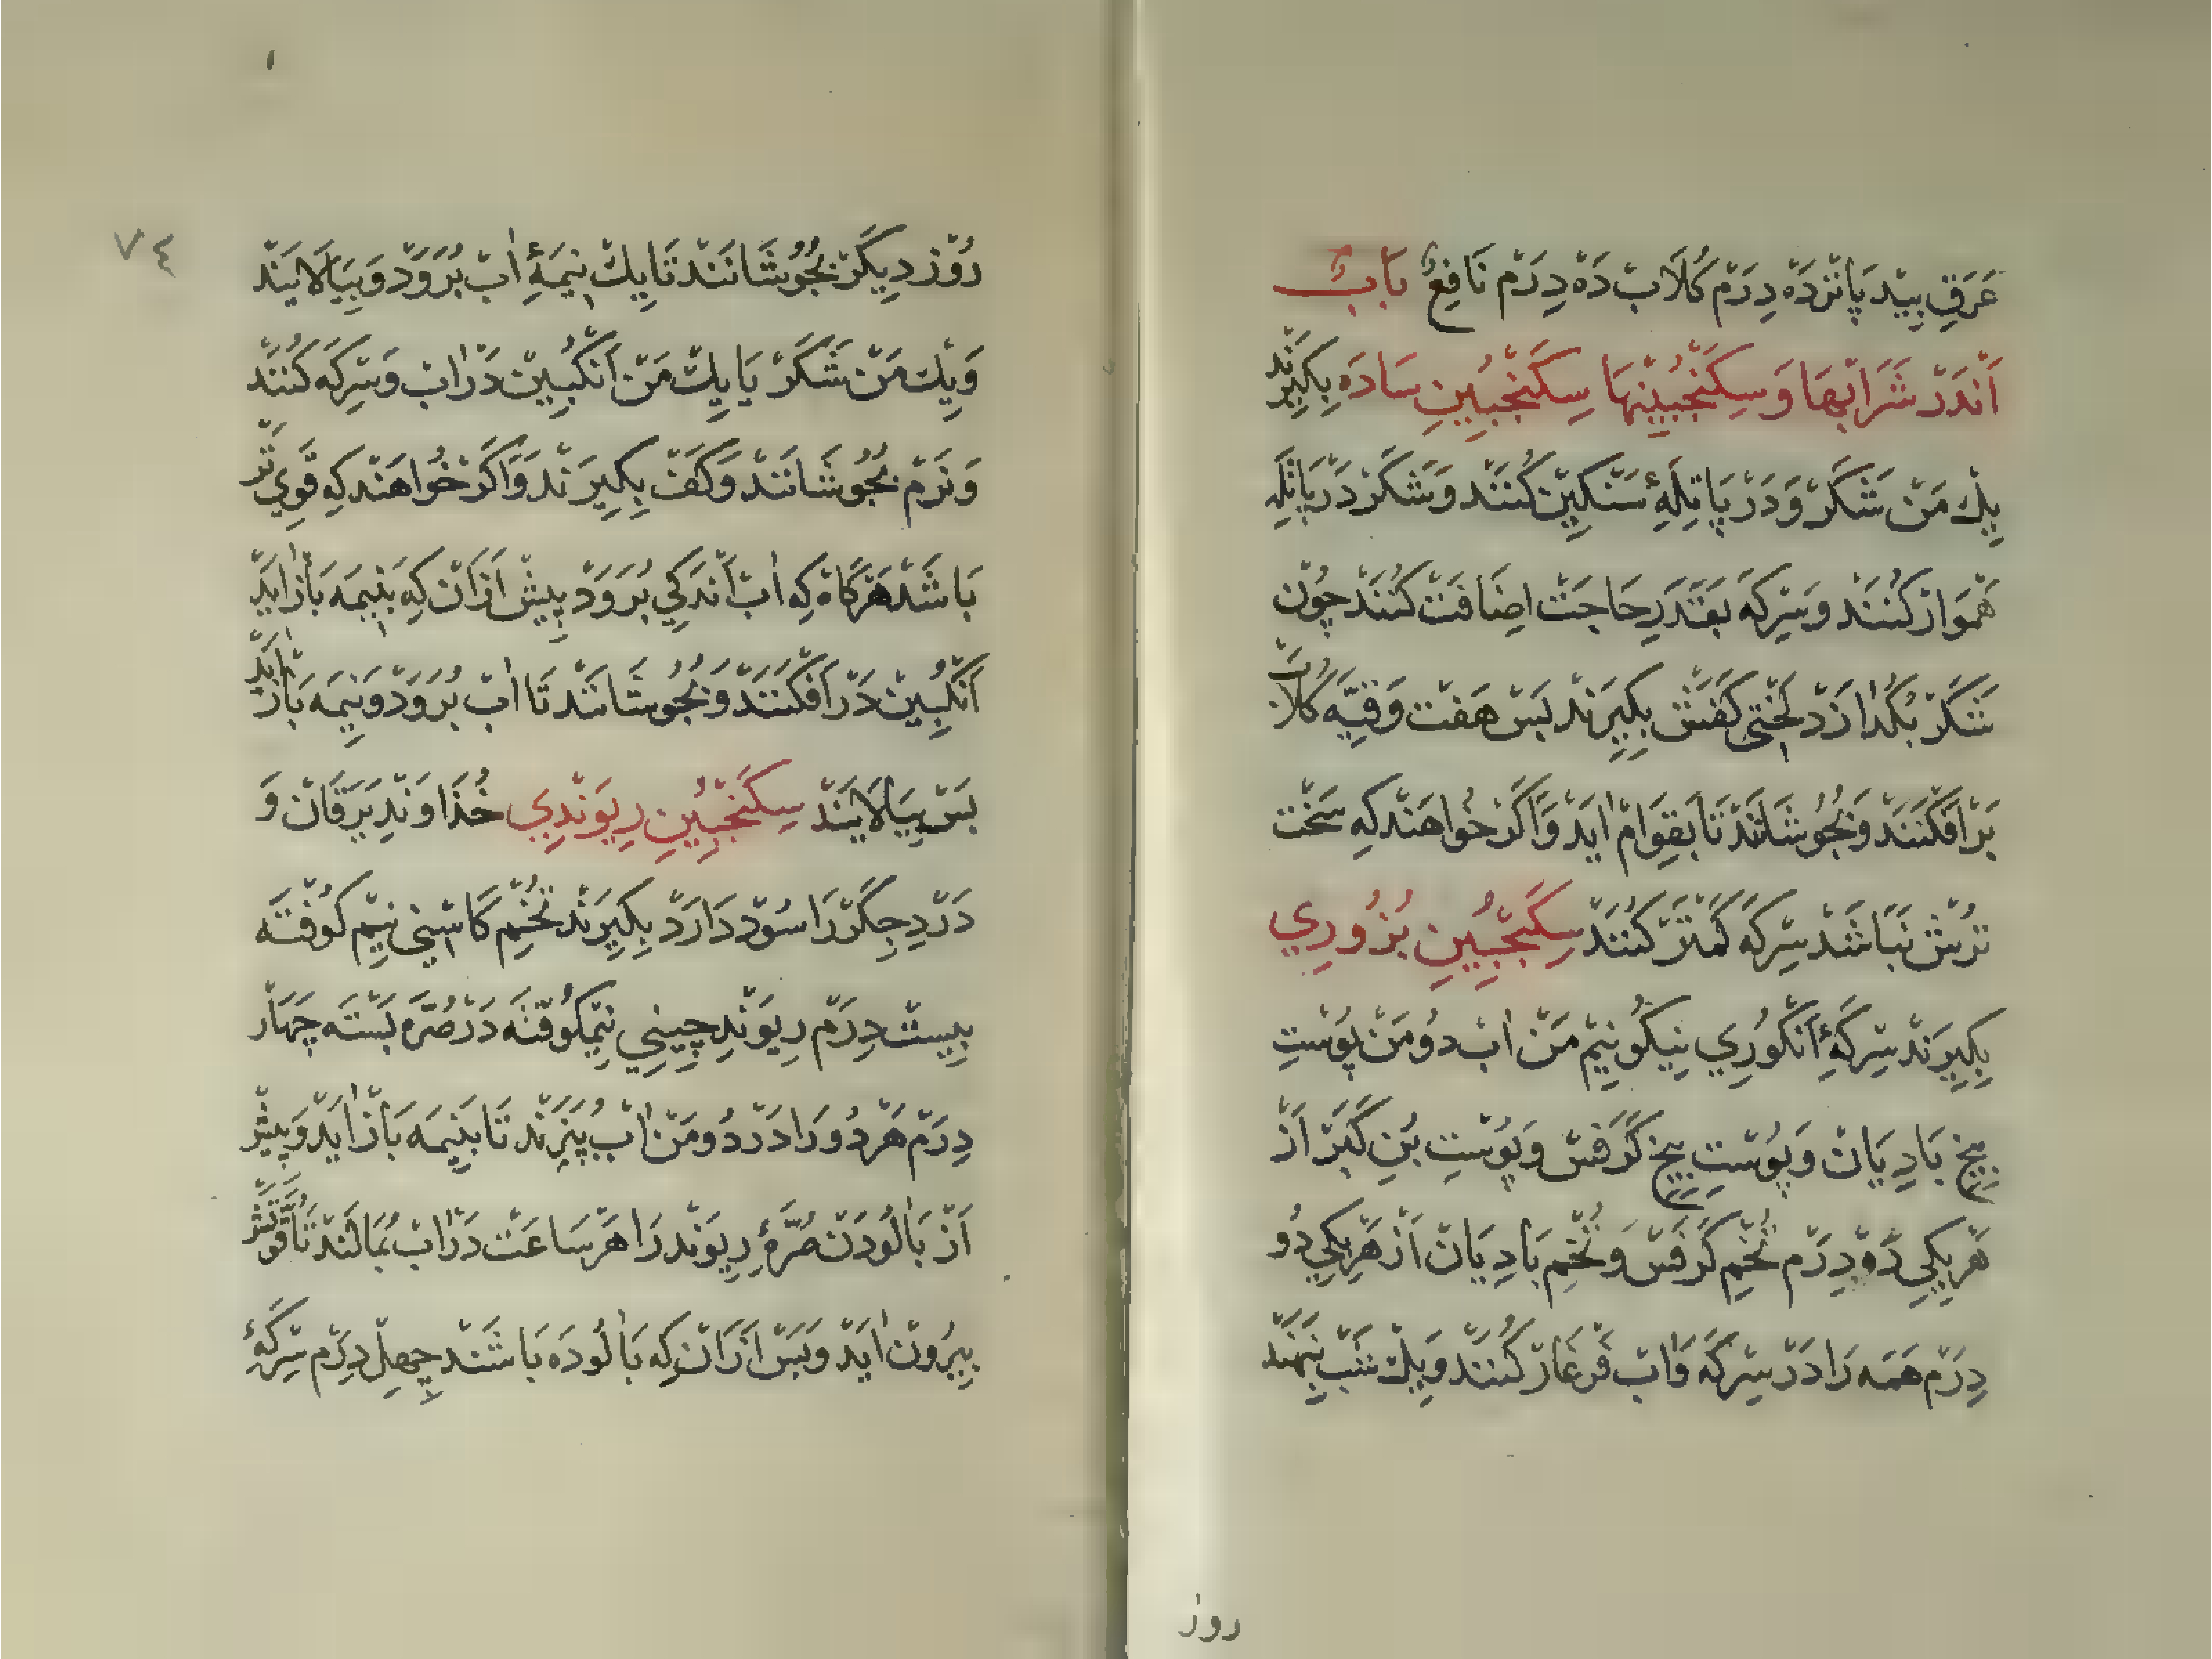 عَرَقِ بِیدْ پَانْزْدَهْ دِرَمْ کُلَابْ دَهْ دِرَمْ نَافِعٌ بَابٌ
اَنْدَرْ شَرَابْهَا وَسِكَنْجُبِيْنْهَا سِكَنْجُبِيْنِ سَادَه بِكِيرَنْد
يِكْ مَنْ شَكَرْ وَدَرْ پَاتِلَهِٔ سَنْكِيْن كُنَنْد وَشَكَرْ دَرْ پَاتِلَه
هَمْوَارْ كُنَنْد وَسِرْكَه بَقَدَرِ حَاجَتْ اِضَافَتْ كُنَنْد چُوْن
شَكَرْ بُكُدَازَدْ لَخْتِي كَفَشْ بِكِيرَنْد پَسْ هَفْت وَقِيَّه كُلَابْ
بَرْ اَفْكَنَنْد وَبُجُوشَانَنْد تَا بَقِوَامْ اٰيَدْ وَاَكَرْ خُواهَنْد كِه سَخْت
تُرُشْ نَبَاشَدْ سِرْكَه كَمْتَرْ كُنَنْد سِكَنْجُبِيْنِ بُزُورِي
بِكِيرَنْد سِرْكَهِٔ اَنْكُورِي نِيكُو نِيْم مَنْ اٰبْ دُو مَنْ پُوْسْتِ
بِيْخِ بَادِيَانْ وَپُوْسْتِ بِيْخِ كَرَفْسْ وَپُوْسْتِ بُنِ كَبَرْ اَزْ
هَرْيِكِي دَه دِرَمْ تُخْمِ كَرَفْسْ وَتُخْمِ بَادِيَانْ اَزْ هَرْيِكِي دُو
دِرَمْ هَمَه رَا دَرْ سِرْكَه وَاٰبْ فَرْغَارْ كُنَنْد وَيِكْ شَبْ بِنَهَنْد
روز
۷٤
رُوْز دِيكَرْ بُجُوشَانَنْد تَا يِكْ نِيمَهِٔ اٰبْ بُرَوَدْ وَبِيَالَايَنْد
وَيِكْ مَنْ شَكَرْ يَا يِكْ مَنْ اَنْكُبِيْن دَرْ اٰبْ وَسِرْكَه كُنَنْد
وَنَرْم بُجُوشَانَنْد وَكَفْ بِكِيرَنْد وَاَكَرْ خُواهَنْد كِه قَوِي تَر
بَاشَدْ هَرْكَاهْ كِه اٰبْ اَنْدَكِي بُرَوَدْ پِيشْ اَزْ اٰنْ كِه بَنِيمَه بَازْ اٰيَدْ
اَنْكُبِيْن دَرْ اَفْكَنَنْد وَبُجُوشَانَنْد تَا اٰبْ بُرَوَدْ وَنِيمَه بَازْ اٰيَدْ
پَسْ بِيَالَايَنْد سِكَنْجُبِيْنِ رِيوَنْدِي خُذَاوَنْدِ يَرَقَانْ وَ
دَرْدِ جِكَرْ رَا سُوْد دَارَدْ بِكِيرَنْد تُخْمِ كَاسْنِي نِيْم كُوْفْتَه
بِيسْتْ دِرَمْ رِيوَنْدِ چِينِي نِيْمكُوْفْتَه دَرْ صُرَّه بَسْتَه چَهَارْ
دِرَمْ هَرْ دُو رَا دَرْ دُو مَنْ اٰبْ بُپَزَنْد تَا بَنِيمَه بَازْ اٰيَدْ وَپِيشْ
اَزْ پَالُودَنْ صُرَّهِٔ رِيوَنْد رَا هَرْ سَاعَتْ دَرْ اٰبْ بُمَالَنْد تَا قُوَّتَشْ
بِيرُوْن اٰيَدْ وَپَسْ اَزْ اٰنْ كِه پَالُودَه بَاشَنْد چِهِلْ دِرَمْ سِرْكَهِٔ